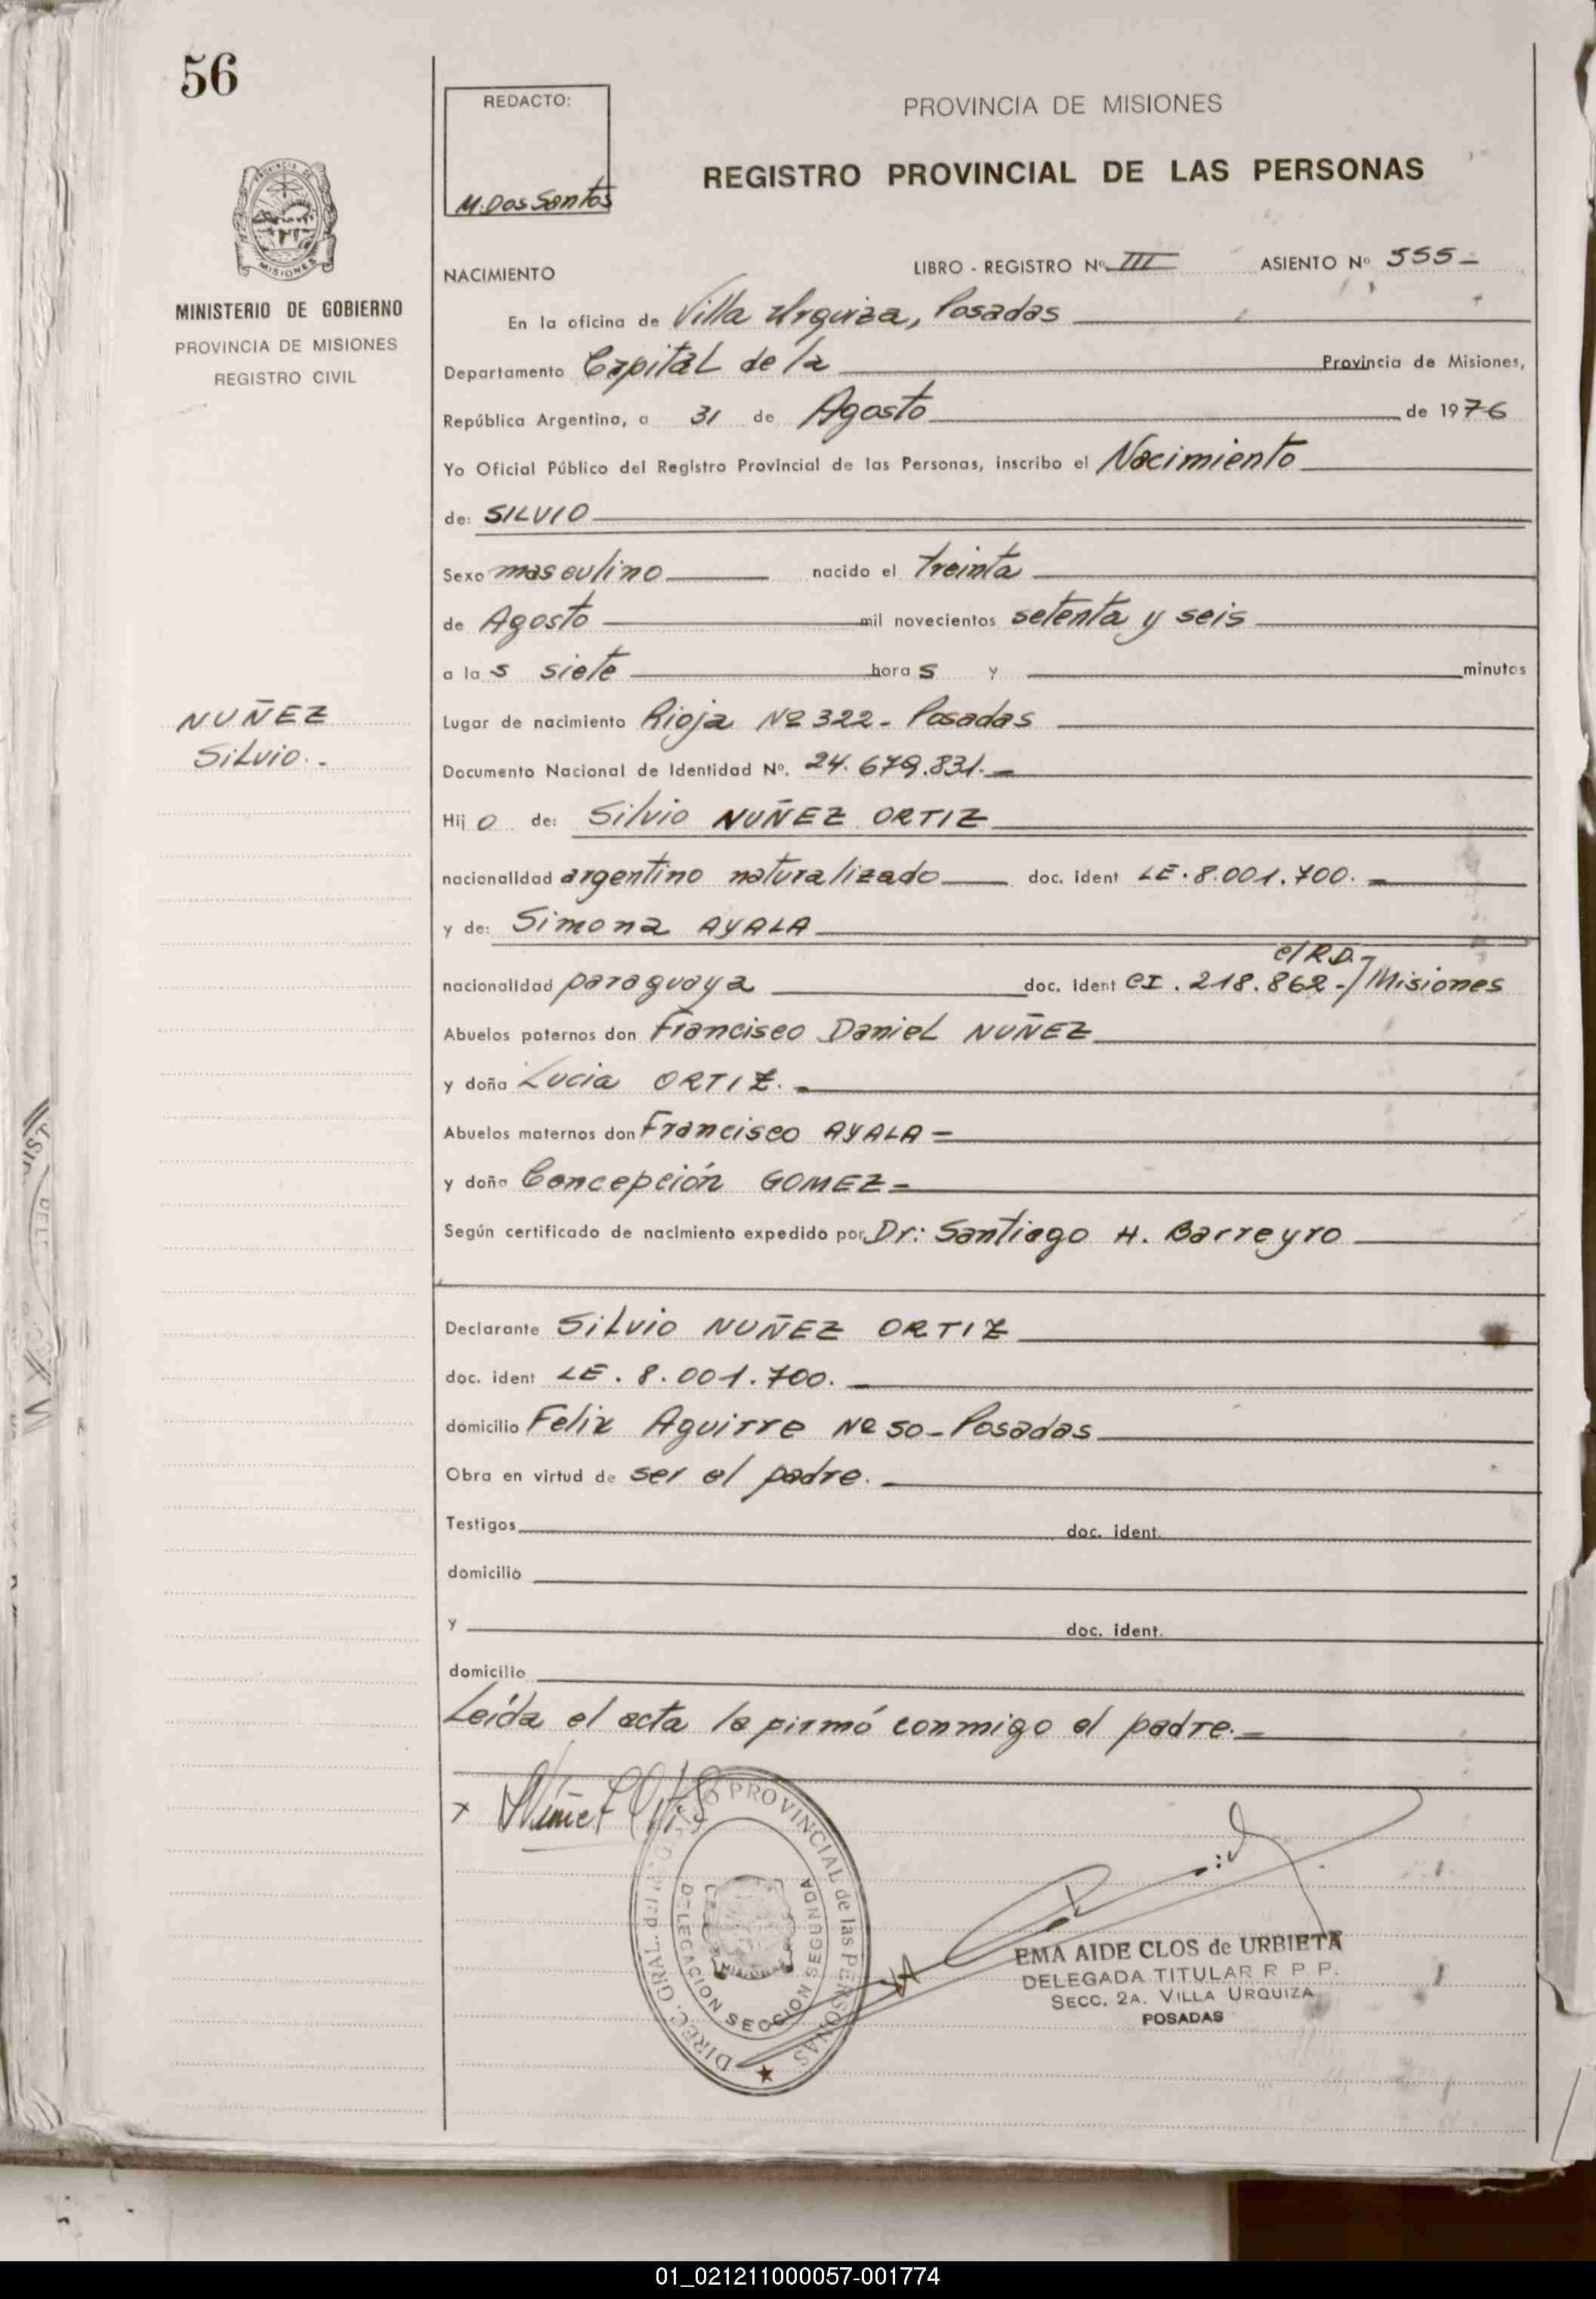 56
REDACTO:
M. Dos Santos
PROVINCIA DE MISIONES
REGISTRO PROVINCIAL DE LAS PERSONAS
PROVINCIA DE
MISIONES
MINISTERIO DE GOBIERNO
PROVINCIA DE MISIONES
REGISTRO CIVIL
NACIMIENTO LIBRO - REGISTRO Nº III ASIENTO Nº 555-
En la oficina de Villa Urquiza, Posadas
Departamento Capital de la Provincia de Misiones,
República Argentina, a 31 de Agosto de 1976
Yo Oficial Público del Registro Provincial de las Personas, inscribo el Nacimiento
de: SILVIO
Sexo masculino nacido el treinta
de Agosto mil novecientos setenta y seis
a las siete horas y minutos
NUÑEZ
Silvio.-
Lugar de nacimiento Rioja Nº 322- Posadas
Documento Nacional de Identidad Nº. 24.679.831.-
Hijo de: Silvio NUÑEZ ORTIZ
nacionalidad argentino naturalizado doc. ident LE. 8.001.700.-
y de: Simona AYALA
nacionalidad paraguaya doc. ident CI. 218.862-/Misiones
Abuelos paternos don Francisco Daniel NUÑEZ
y doña Lucia ORTIZ.-
Abuelos maternos don Francisco AYALA-
y doña Concepción GOMEZ-
Según certificado de nacimiento expedido por Dr: Santiago H. Barreyro
Declarante Silvio NUÑEZ ORTIZ
doc. ident LE. 8.001.700.-
domicilio Felix Aguirre Nº 50- Posadas
Obra en virtud de ser el padre.-
Testigos doc. ident.
domicilio
y doc. ident.
domicilio
Leída el acta la firmó conmigo el padre.-
x
PROVINCIAL de las PERSONAS
DIREC. GRAL.
DELEGACION SECCION SEGUNDA
EMA AIDE CLOS de URBIETA
DELEGADA TITULAR R P P.
SECC. 2A. VILLA URQUIZA
POSADAS
01_021211000057-001774